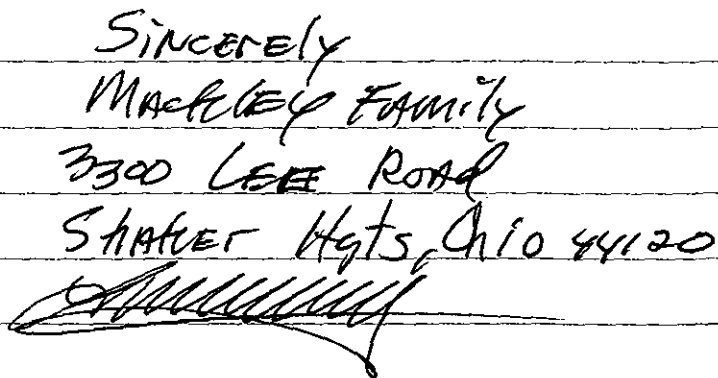 Sincerely
Mackley Family
3300 Lee Road
Shaker Hgts, Ohio 44120